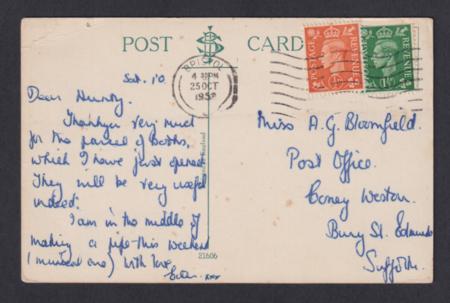 POST CARD
BRISTOL
4 PM
25 OCT
195
POSTAGE REVENUE
POSTAGE REVENUE
Sat. 10
Dear Aunty,
Thankyou very much
for the parcel of books,
which I have just opened.
They will be very useful
indeed.
I am in the middle of
making a pipe this weekend
(musical one) With love,
xxx
Miss A. G. Bloomfield.
Post Office.
Coney Weston.
Bury St. Edmunds
Suffolk.
21606